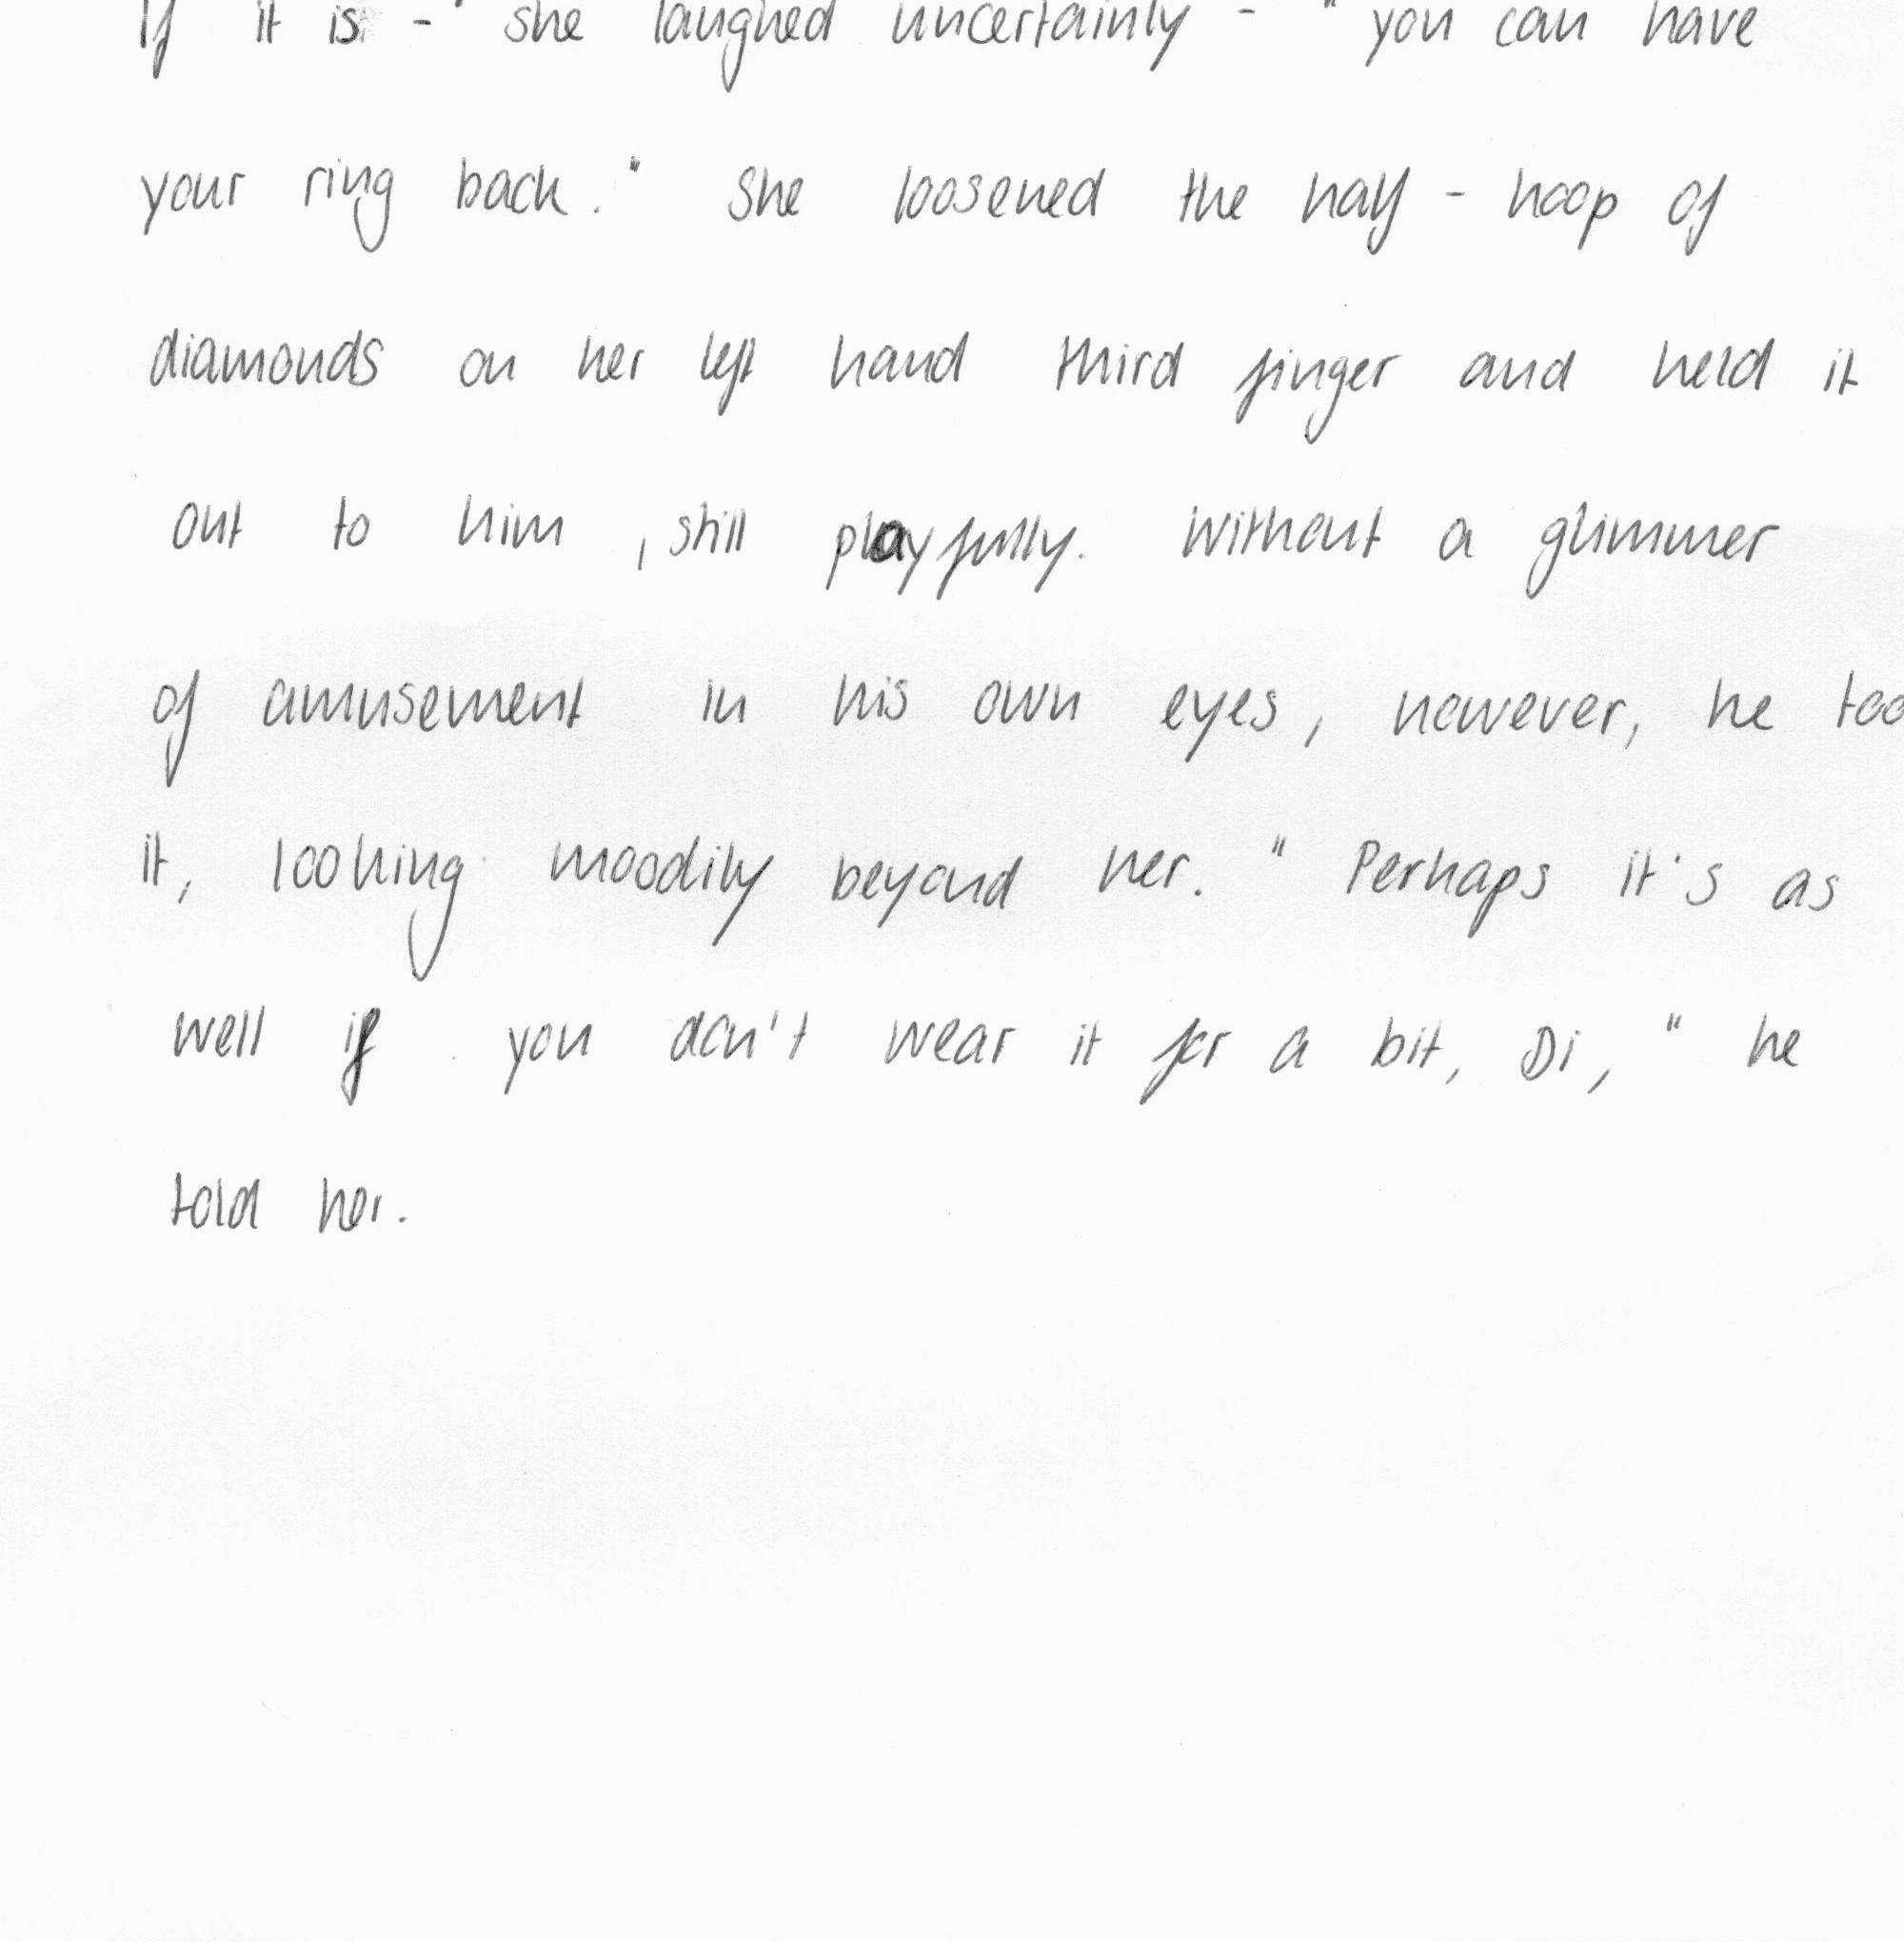 If it is -" she laughed uncertainly - "you can have
your ring back." She loosened the half - hoop of
diamonds on her left hand third finger and held it
out to him, still playfully. Without a glimmer
of amusement in his own eyes, however, he too
it, looking moodily beyond her. "Perhaps it's as
well if you don't wear it for a bit, Di," he
told her.